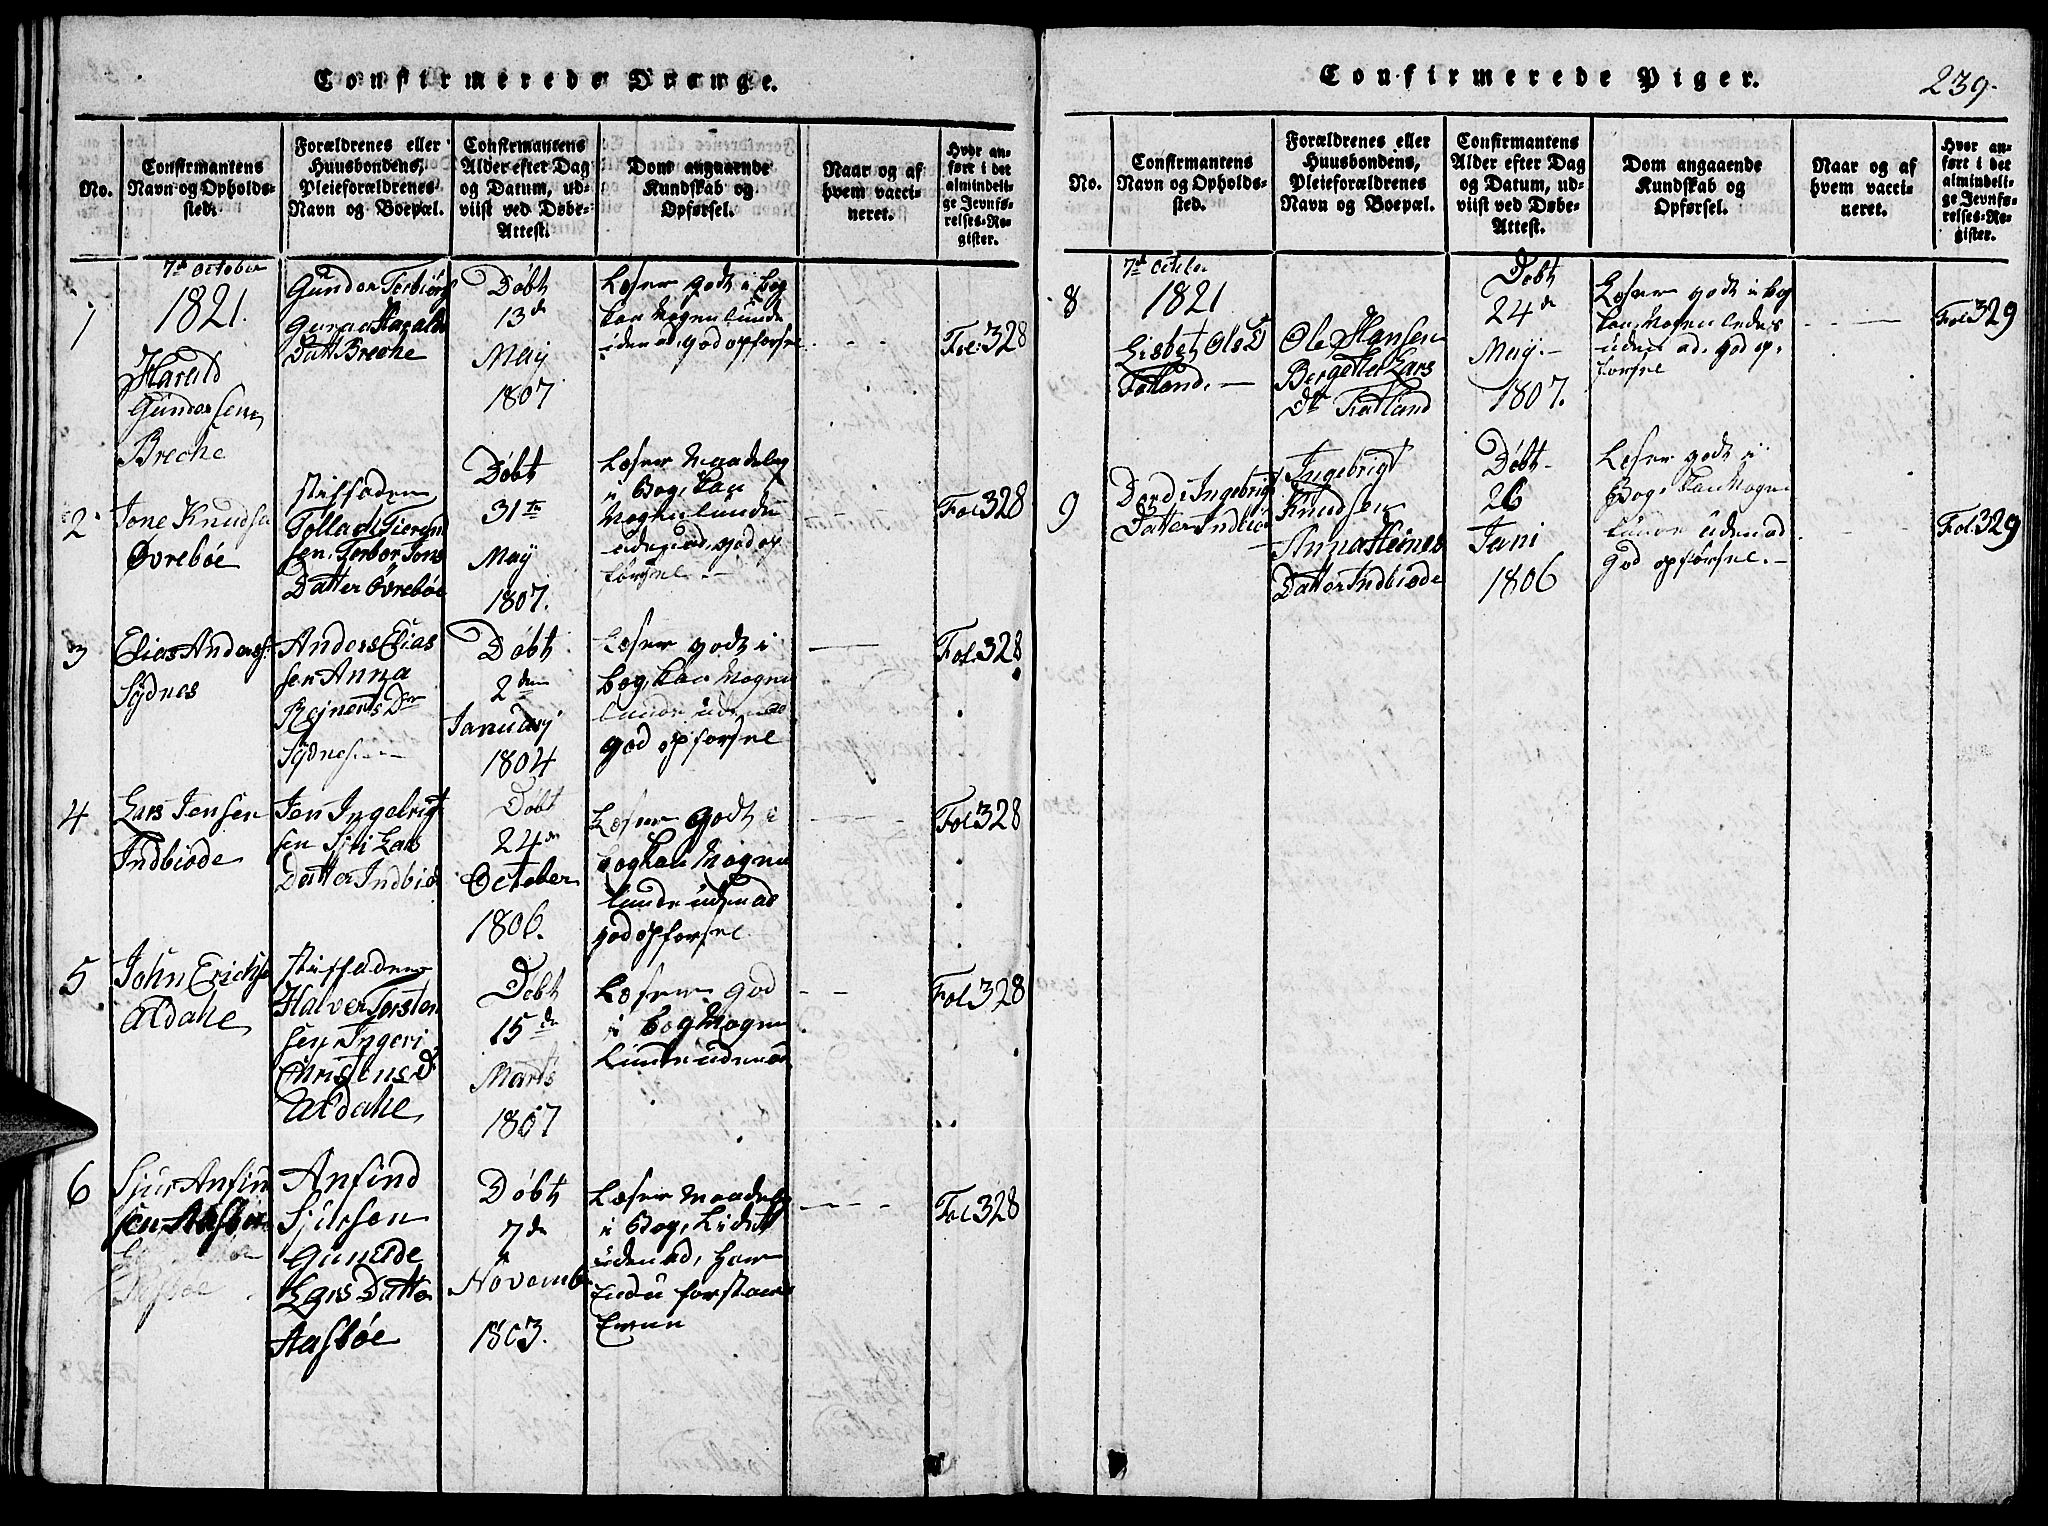 Confirmerede Drenge.
No.
Confirmantens
Navn og Opholds-
sted.
Forældrenes eller
Huusbondens,
Pleieforældrenes
Navn og Boepæl.
Confirmantens
Alder efter Dag
og Datum, ud-
viist ved Døbe-
Attest.
Dom angaaende
Kundskab og
Opførsel.
Naar og af
hvem vacci-
neret.
Hvor an-
ført i det
almindeli-
ge Jevnfø-
relses-Re-
gister.
1
7d October
1821.
Harald
Gunder Sen
Breche
Gunder Torbiørs
Harald
Datt Breche
Døbt
13de
May
1807
Læser godt i bog
kan Nogen lunde
uden ad, god opførsel
Fol: 328
2
Jone Knuds
Øvrebøe
Stiffader
Tollach
sen, Torbor Jons
Datter Øvrebøe
Døbt
31te
May
1807.
Læser Maadelig
i Bog, kan
Nogenlunde
udenad, god op
førsel.
Fol 328
3
Elias Anders
Sydnes
Anders Elias
sen Anna
Rejnerts Dr
Sydnes
Døbt
2den
Januarj
1804
Læser godt i
bog, kan Nogen
lunde udenad
god opførsel
Fol. 328
4
Lars Jensen
Indbiode
Jen Ingebrigt
sen Siri Lars
Datter Indbio
Døbt
24de
October
1806.
Læser godt i
bog kan Nogen
lunde udenad
god opførsel
Fol 328
5
John Erichs
Aldahe
Stiffader
Halver Torsten
sen Ingeri
Christens D
Aldahe
Døbt
15de
Marts
1807
Læser god
i bog Nogen
Lunde udenad
Fol 328
6
Sjur Anfin
sen Aasbøe
Anfind
Sjursen
Gunelde
Lars Datter
Aasbøe
Døbt
7de
Novemb
1803.
Læser Maadelig
i Bog, Lidet
udenad, har
Endu forstaae
Fol 328
Confirmerede Piger.
239.
No.
Confirmantens
Navn og Opholds-
sted.
Forældrenes eller
Huusbondens,
Pleieforældrenes
Navn og Boepæl.
Confirmantens
Alder efter Dag
og Datum, ud-
viist ved Døbe-
Attest.
Dom angaaende
Kundskab og
Opførsel.
Naar og af
hvem vacci-
neret.
Hvor an-
ført i det
almindeli-
ge Jevnfø-
relses-Re-
gister.
8
7d October
1821
Lisbet Ols D
Ole Hansen
Bergitte Lars
Dr
Døbt
24de
May.
1807.
Læser godt i bog
kan Nogen ledes
uden ad, god op-
førsel
Fol 329
9
Dordi Ingebrigt
Datter Indbio
Ingebrigt
Knudsen
Anna Heines
Datter Indbiode
Døbt
26
Juni
1806
Læser godt i
Bog, kan Nogen
lunde udenad
god opførsel.
Fol. 329